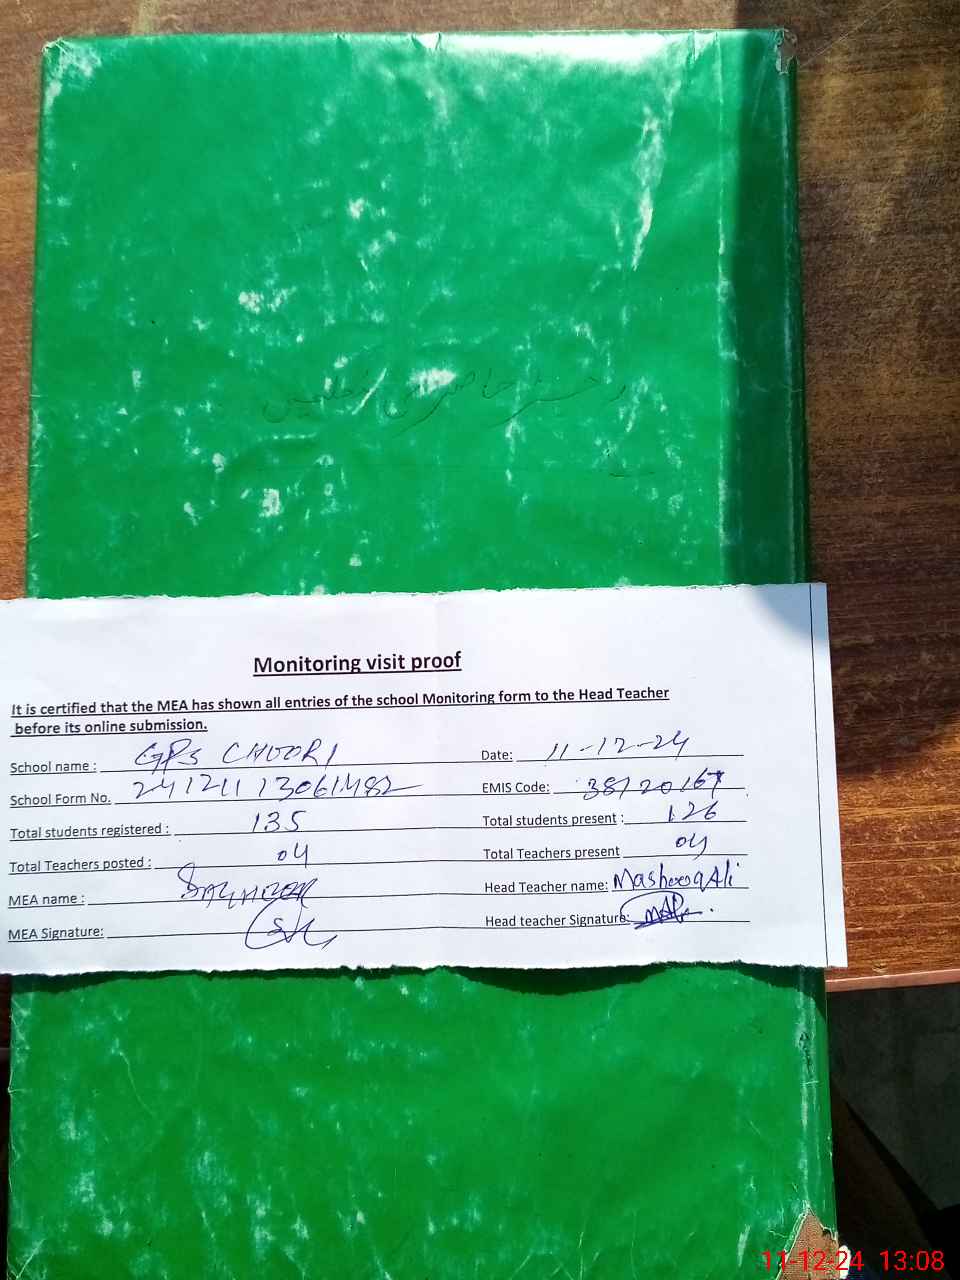 رجسٹر حاضری معلمین
Monitoring visit proof
It is certified that the MEA has shown all entries of the school Monitoring form to the Head Teacher
before its online submission.
School name : GPS CHOORI Date: 11-12-24
School Form No. EMIS Code: 38120167
Total students registered : 135 Total students present : 126
Total Teachers posted : 04 Total Teachers present 04
MEA name : Head Teacher name: Mashooq Ali
MEA Signature: Head teacher Signature:
11-12-24 13:08